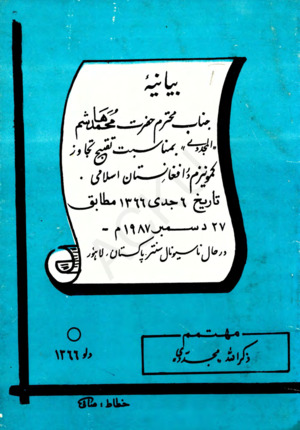 بیانیهٔ
جناب محترم حضرت محمد هاشم
«المجددی» بمناسبت تقبیح تجاوز
کمونیزم در افغانستان اسلامی .
تاریخ ۶ جدی ۱۳۶۶ مطابق
۲۷ دسمبر ۱۹۸۷ م -
در حال ناسیونال سنتر پاکستان، لاهور
مهتمم
ذکر الله مجددی
دلو ۱۳۶۶
خطاط :